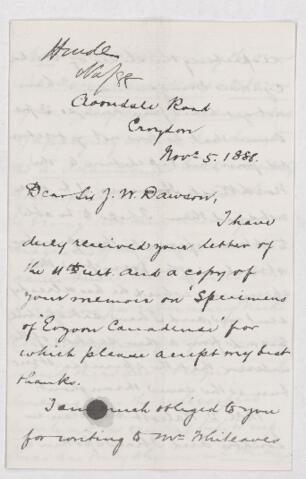 Hinde
Nov 88
Avondale Road
Croydon
Nov. 5. 1888.
Dear Sir J. W. Dawson,
I have
duly received your letter of
the 11th ult. and a copy of
your memoir on 'Specimens
of Eozoon Canadense' for
which please accept my best
thanks.
I am much obliged to you
for writing to Mr Whiteaves